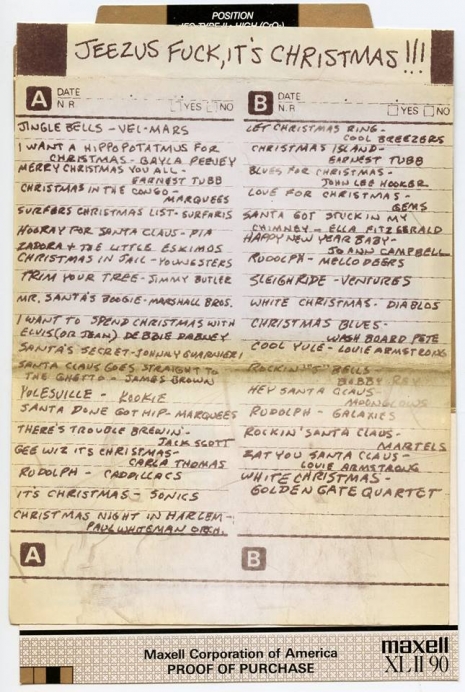 POSITION
IES TYPE II • HIGH (CrO₂)
JEEZUS FUCK, IT'S CHRISTMAS!!!
A DATE
N.R YES NO
JINGLE BELLS - VEL-MARS
I WANT A HIPPOPOTATMUS FOR
CHRISTMAS - GAYLA PEEVEY
MERRY CHRISTMAS YOU ALL -
EARNEST TUBB
CHRISTMAS IN THE CONGO -
MARQUEES
SURFERS CHRISTMAS LIST - SURFARIS
HOORAY FOR SANTA CLAUS - PIA
ZADORA + THE LITTLE ESKIMOS
CHRISTMAS IN JAIL - YOUNGSTERS
TRIM YOUR TREE - JIMMY BUTLER
MR. SANTA'S BOOGIE - MARSHALL BROS.
I WANT TO SPEND CHRISTMAS WITH
ELVIS (OR JEAN) DEBBIE DABNEY
SANTA'S SECRET - JOHNNY GUARNIERI
SANTA CLAUS GOES STRAIGHT TO
THE GHETTO - JAMES BROWN
YULESVILLE - KOOKIE
SANTA DONE GOT HIP - MARQUEES
THERE'S TROUBLE BREWIN' -
JACK SCOTT
GEE WIZ IT'S CHRISTMAS -
CARLA THOMAS
RUDOLPH - CADILLACS
IT'S CHRISTMAS - SONICS
CHRISTMAS NIGHT IN HARLEM -
PAUL WHITEMAN ORCH.
A
B DATE
N.R YES NO
LET CHRISTMAS RING -
COOL BREEZERS
CHRISTMAS ISLAND -
EARNEST TUBB
BLUES FOR CHRISTMAS -
JOHN LEE HOOKER
LOVE FOR CHRISTMAS -
GEMS
SANTA GOT STUCK IN MY
CHIMNEY - ELLA FITZGERALD
HAPPY NEW YEAR BABY -
JO ANN CAMPBELL
RUDOLPH - MELLO DEERS
SLEIGH RIDE - VENTURES
WHITE CHRISTMAS - DIABLOS
CHRISTMAS BLUES -
WASH BOARD PETE
COOL YULE - LOUIE ARMSTRONG
ROCKIN' "J" BELLS -
BOBBY RAY
HEY SANTA CLAUS -
MOONGLOWS
RUDOLPH - GALAXIES
ROCKIN' SANTA CLAUS -
MARTELS
ZAT YOU SANTA CLAUS -
LOUIE ARMSTRONG
WHITE CHRISTMAS -
GOLDEN GATE QUARTET
B
Maxell Corporation of America
PROOF OF PURCHASE
maxell
XL II 90